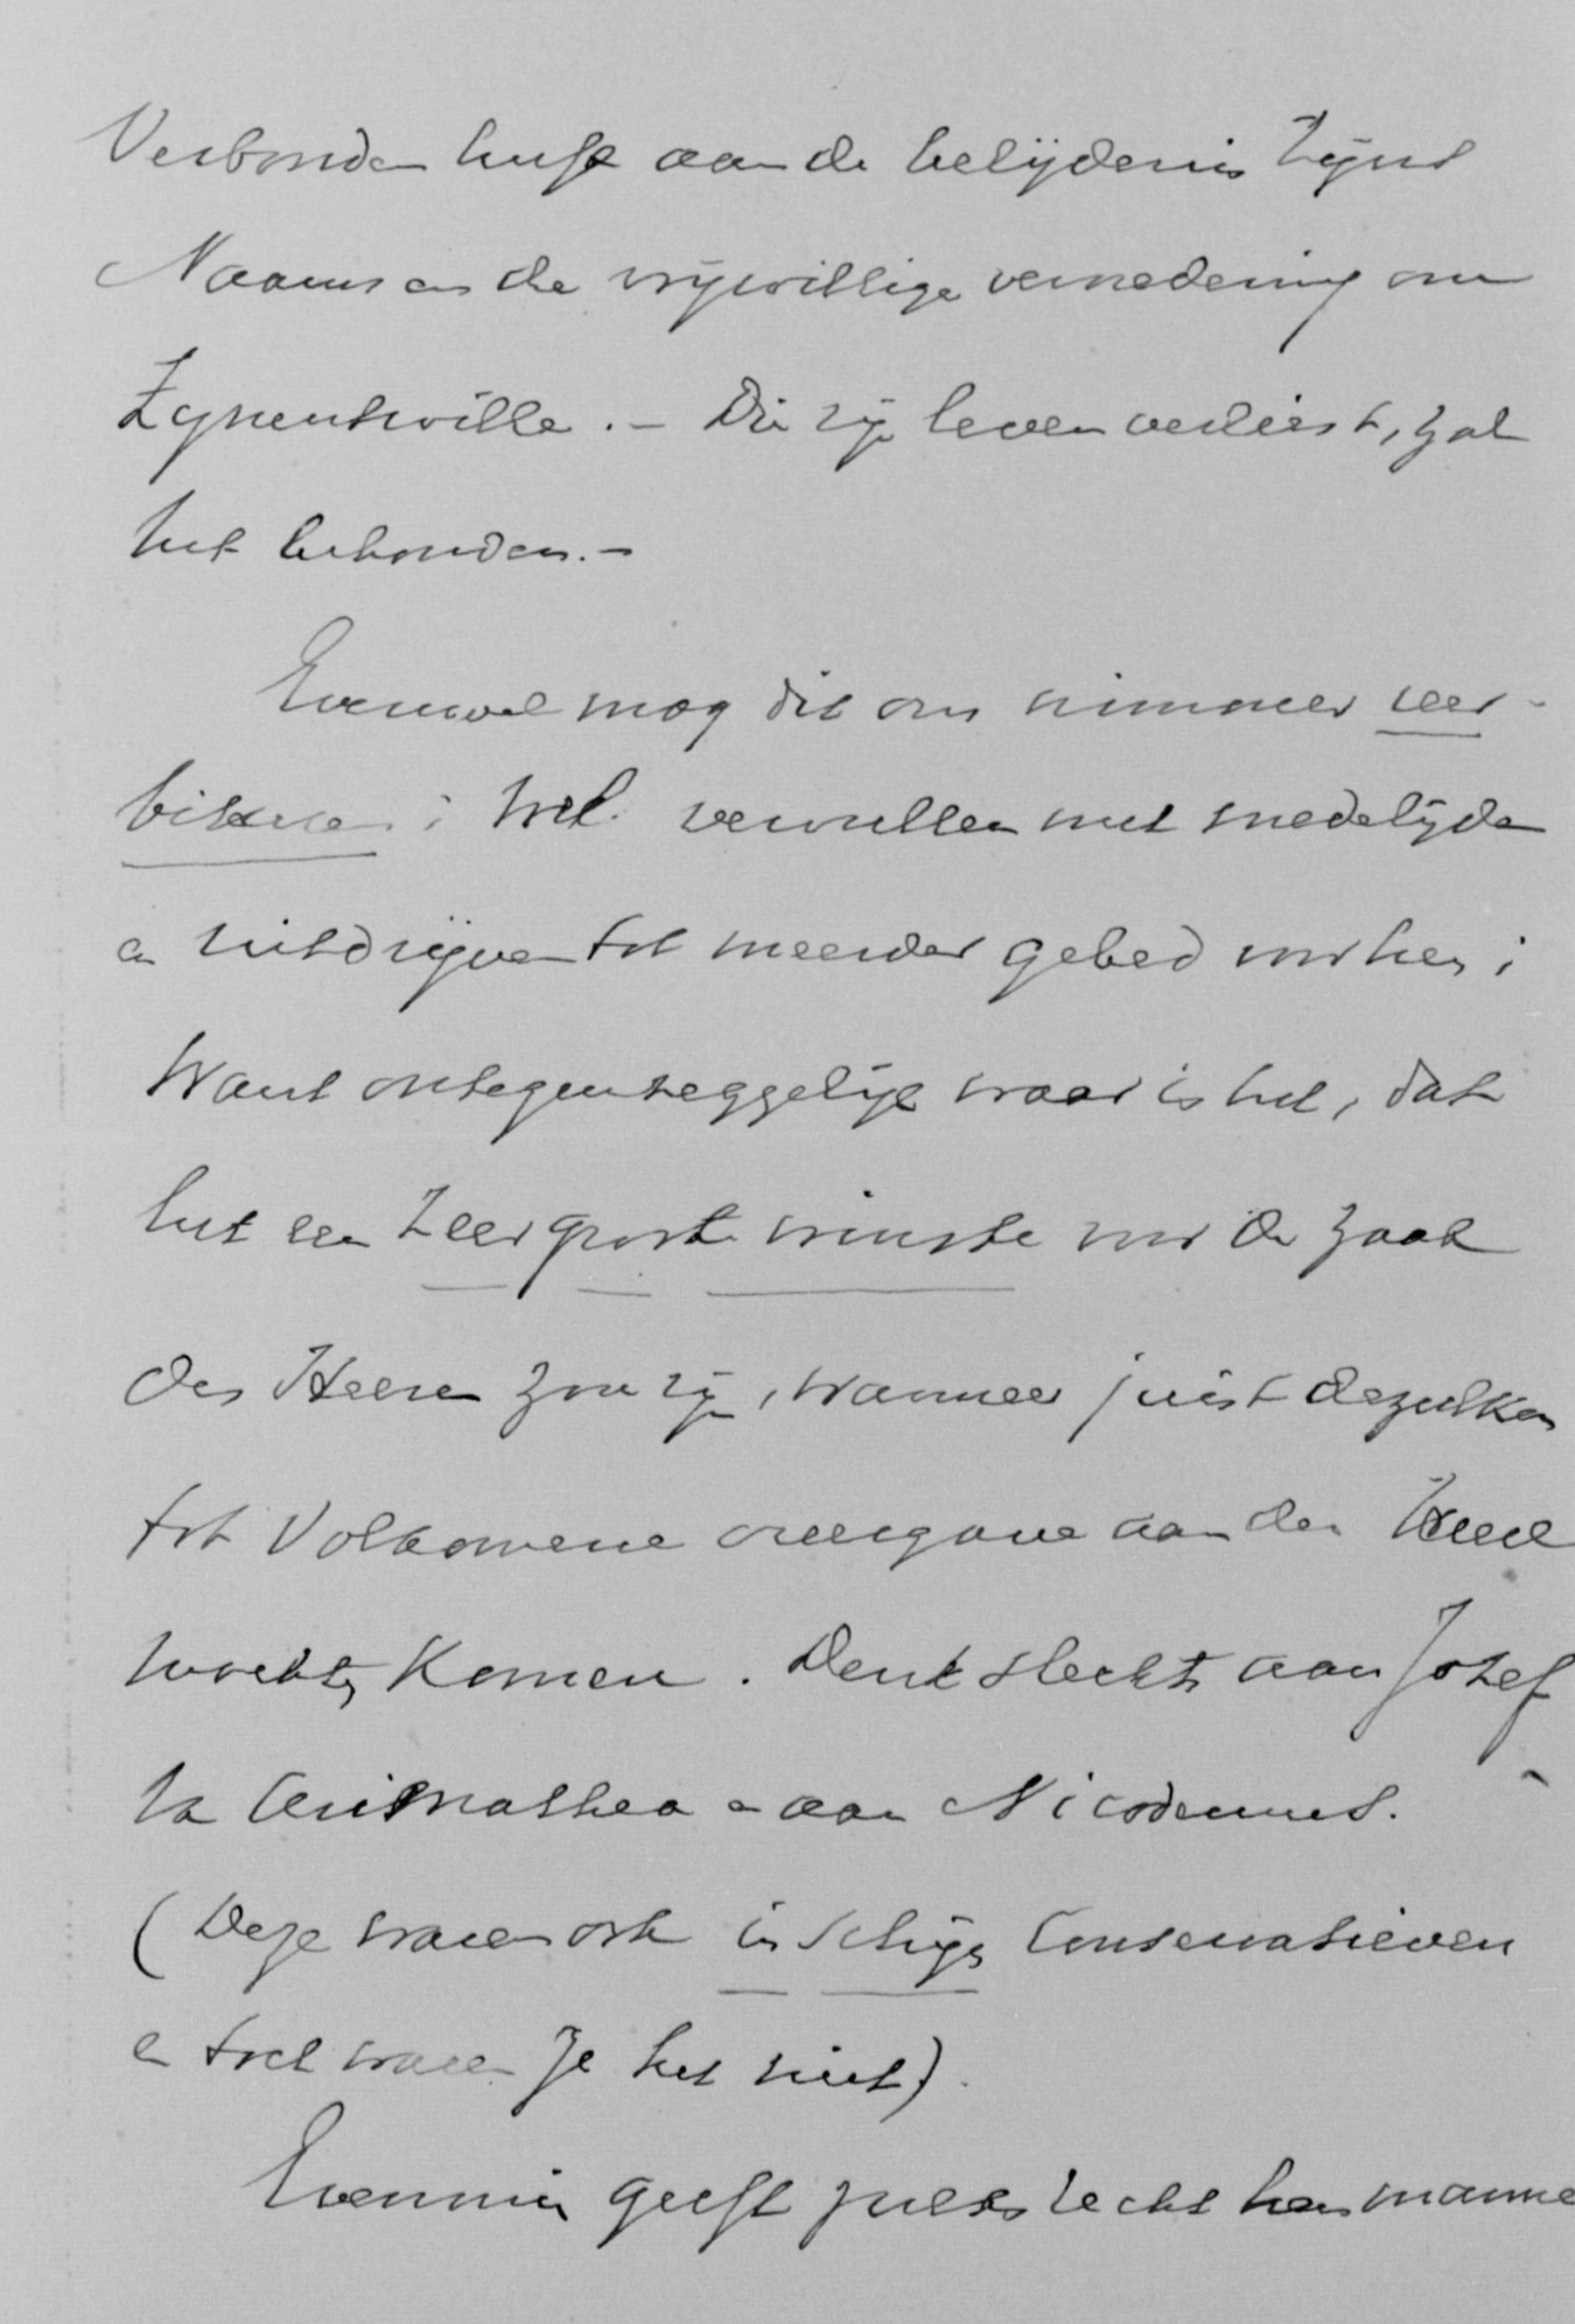 Verbonden heeft aan de belijdenis Zijns
Naams en de vrijwillige vernedering om
Zijnentwille. – Die zijn leven verliest, zal
het behouden. –
Evenwel mog dit ons nimmer ver-
bitteren; Wel vervullen met medelijden
en uitdrijven tot meerder gebed voor hen;
Want ontegenzeggelijk waar is het, dat
het een zeer groote winste voor de zaak
des Heeren zou zijn, wanneer juist dezulken
tot Volkomene overgave aan den Heere
mochten komen. Denk slechts aan Jozef
va Arimathea en aan Nicodemus.
(Deze waren ook in schijn Conservatieven
en toch waren ze het niet).
Evenmin geeft zulks recht hen manne